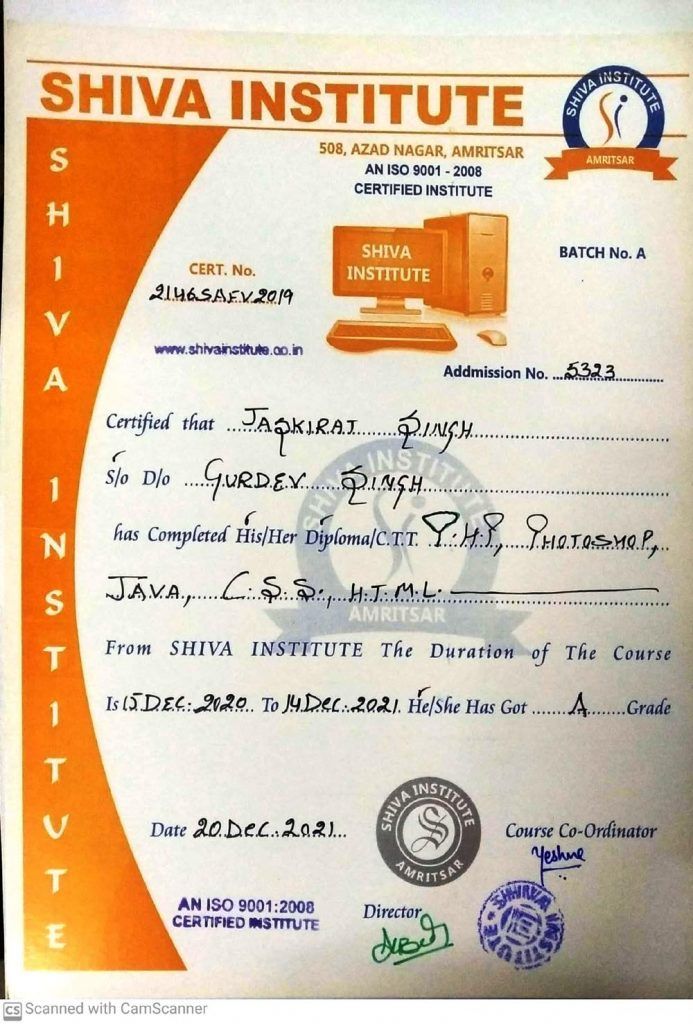 SHIVA INSTITUTE
SHIVA INSTITUTE
AMRITSAR
508, AZAD NAGAR, AMRITSAR
AN ISO 9001 - 2008
CERTIFIED INSTITUTE
SHIVA INSTITUTE
SHIVA
INSTITUTE
BATCH No. A
CERT. No.
2146SAFV2019
www.shivainstitute.co.in
Addmission No. ...5323
Certified that Jaskirat Singh
S/o D/o Gurdev Singh
has Completed His/Her Diploma/C.T.T. P.H.P, Photoshop,
Java, C.S.S., H.T.M.L.
SHIVA INSTITUTE
AMRITSAR
From SHIVA INSTITUTE The Duration of The Course
Is 15 Dec. 2020 To 14 Dec. 2021 He/She Has Got ....... A ....... Grade
SHIVA INSTITUTE
AMRITSAR
Date 20 Dec. 2021
Course Co-Ordinator
AN ISO 9001:2008
CERTIFIED INSTITUTE
Director
SHIVA INSTITUTE
CS Scanned with CamScanner